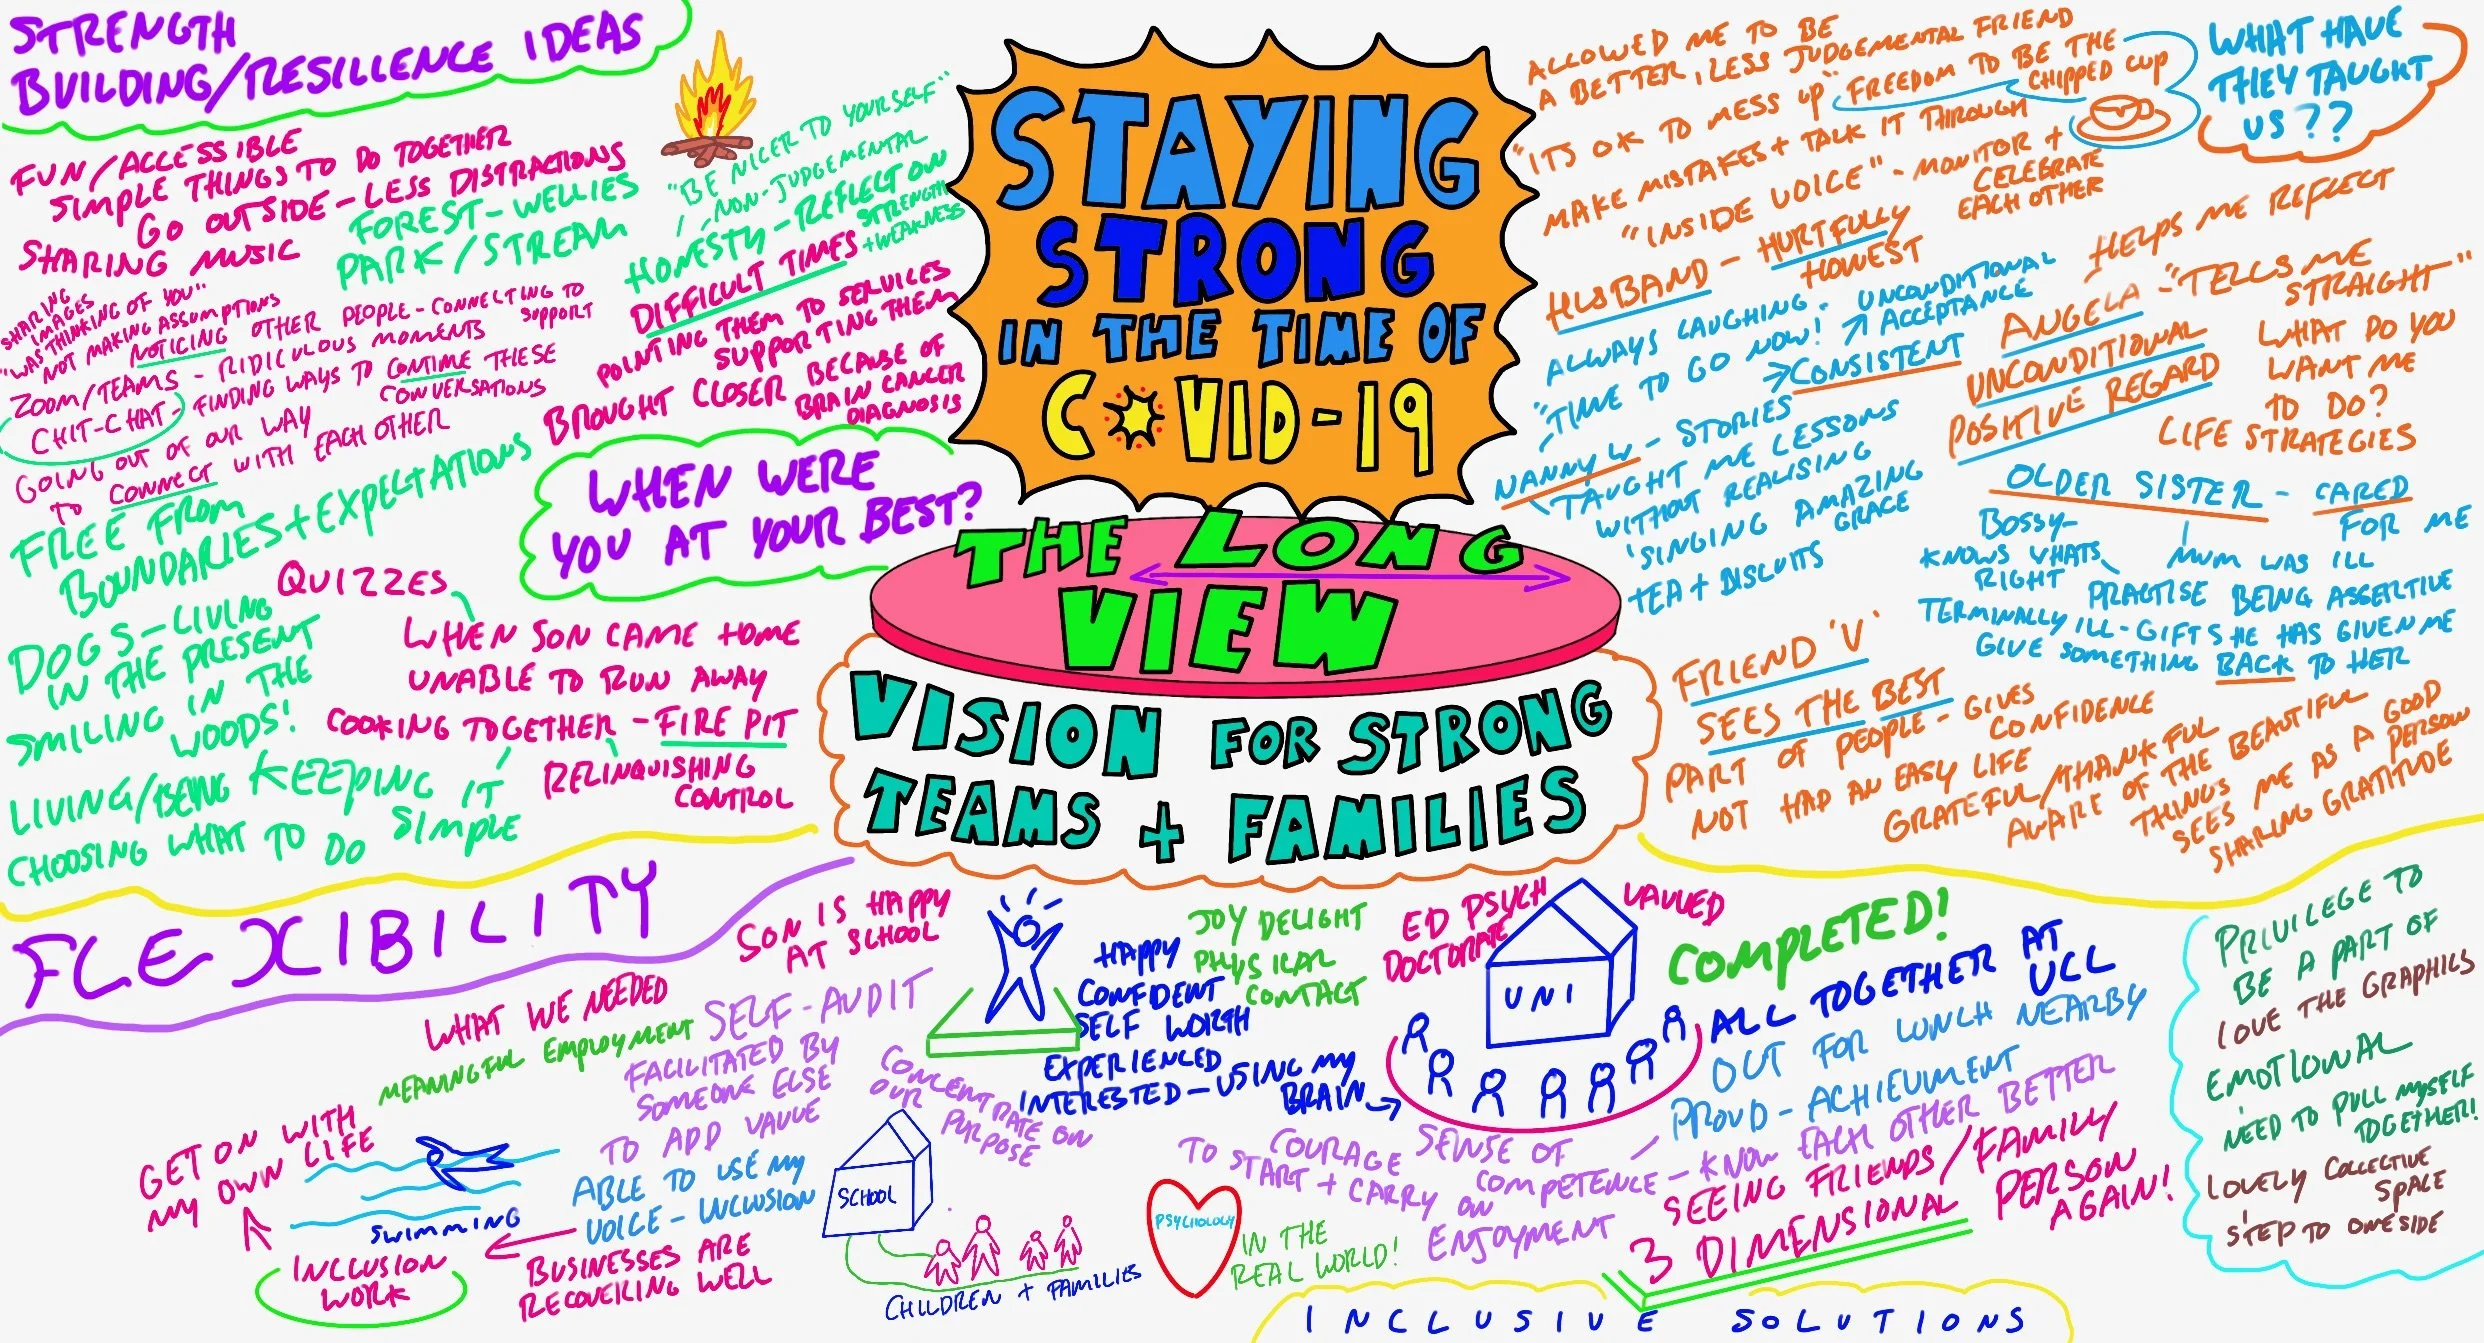 STRENGTH
BUILDING/RESILLENCE IDEAS
FUN/ACCESSIBLE
SIMPLE THINGS TO DO TOGETHER
GO OUTSIDE - LESS DISTRACTIONS
FOREST - WELLIES
PARK/STREAM
SHARING MUSIC
SHARING
IMAGES
"WAS THINKING OF YOU"
NOT MAKING ASSUMPTIONS
NOTICING OTHER PEOPLE - CONNECTING TO
SUPPORT
ZOOM/TEAMS - RIDICULOUS MOMENTS
CHIT-CHAT - FINDING WAYS TO CONTINUE THESE
CONVERSATIONS
GOING OUT OF OUR WAY
TO CONNECT WITH EACH OTHER
FREE FROM
BOUNDARIES + EXPECTATIONS
"BE NICER TO YOURSELF"
NON-JUDGEMENTAL
HONESTY - REFLECT ON
STRENGTH
+ WEAKNESS
DIFFICULT TIMES
POINTING THEM TO SERVICES
SUPPORTING THEM
BROUGHT CLOSER BECAUSE OF
BRAIN CANCER
DIAGNOSIS
WHEN WERE
YOU AT YOUR BEST?
QUIZZES
WHEN SON CAME HOME
UNABLE TO RUN AWAY
COOKING TOGETHER - FIRE PIT
RELINQUISHING
CONTROL
DOGS - LIVING
IN THE PRESENT
SMILING IN THE
WOODS!
LIVING/BEING KEEPING IT
SIMPLE
CHOOSING WHAT TO DO
STAYING
STRONG
IN THE TIME OF
COVID-19
THE LONG
VIEW
VISION FOR STRONG
TEAMS + FAMILIES
WHAT HAVE
THEY TAUGHT
US??
ALLOWED ME TO BE
A BETTER, LESS JUDGEMENTAL FRIEND
"ITS OK TO MESS UP" FREEDOM TO BE THE
CHIPPED CUP
MAKE MISTAKES + TALK IT THROUGH
"INSIDE VOICE" - MONITOR +
CELEBRATE
EACH OTHER
HUSBAND - HURTFULLY
HONEST
ALWAYS LAUGHING - UNCONDITIONAL
ACCEPTANCE
"TIME TO GO NOW!
CONSISTENT
NANNY W - STORIES
TAUGHT ME LESSONS
WITHOUT REALISING
'SINGING AMAZING
GRACE
TEA + BISCUITS
HELPS ME REFLECT
ANGELA - "TELLS ME
STRAIGHT"
UNCONDITIONAL
POSITIVE REGARD
WHAT DO YOU
WANT ME
TO DO?
LIFE STRATEGIES
OLDER SISTER - CARED
FOR ME
BOSSY -
KNOWS WHATS
RIGHT
MUM WAS ILL
PRACTISE BEING ASSERTIVE
TERMINALLY ILL - GIFT SHE HAS GIVEN ME
GIVE SOMETHING BACK TO HER
FRIEND 'V'
SEES THE BEST
PART OF PEOPLE - GIVES
CONFIDENCE
NOT HAD AN EASY LIFE
GRATEFUL/THANKFUL
AWARE OF THE BEAUTIFUL
THINGS
SEES ME AS A GOOD
PERSON
SHARING GRATITUDE
FLEXIBILITY
SON IS HAPPY
AT SCHOOL
WHAT WE NEEDED
MEANINGFUL EMPLOYMENT
SELF-AUDIT
FACILITATED BY
SOMEONE ELSE
TO ADD VALUE
GET ON WITH
MY OWN LIFE
SWIMMING
INCLUSION
WORK
ABLE TO USE MY
VOICE - INCLUSION
BUSINESSES ARE
RECOVERING WELL
CONCENTRATE ON
OUR
PURPOSE
SCHOOL
CHILDREN + FAMILIES
JOY DELIGHT
PHYSICAL
CONTACT
HAPPY
CONFIDENT
SELF WORTH
EXPERIENCED
INTERESTED - USING MY
BRAIN
ED PSYCH
DOCTORATE
UNI
VALUED
COMPLETED!
ALL TOGETHER AT
UCL
OUT FOR LUNCH NEARBY
PROUD - ACHIEVMENT
COURAGE
TO START + CARRY ON
SENSE OF
COMPETENCE - KNOW EACH OTHER BETTER
ENJOYMENT
SEEING FRIENDS/FAMILY
3 DIMENSIONAL PERSON
AGAIN!
PSYCHOLOGY
IN THE
REAL WORLD!
PRIVILEGE TO
BE A PART OF
LOVE THE GRAPHICS
EMOTIONAL
NEED TO PULL MYSELF
TOGETHER!
LOVELY COLLECTIVE
SPACE
STEP TO ONE SIDE
INCLUSIVE SOLUTIONS